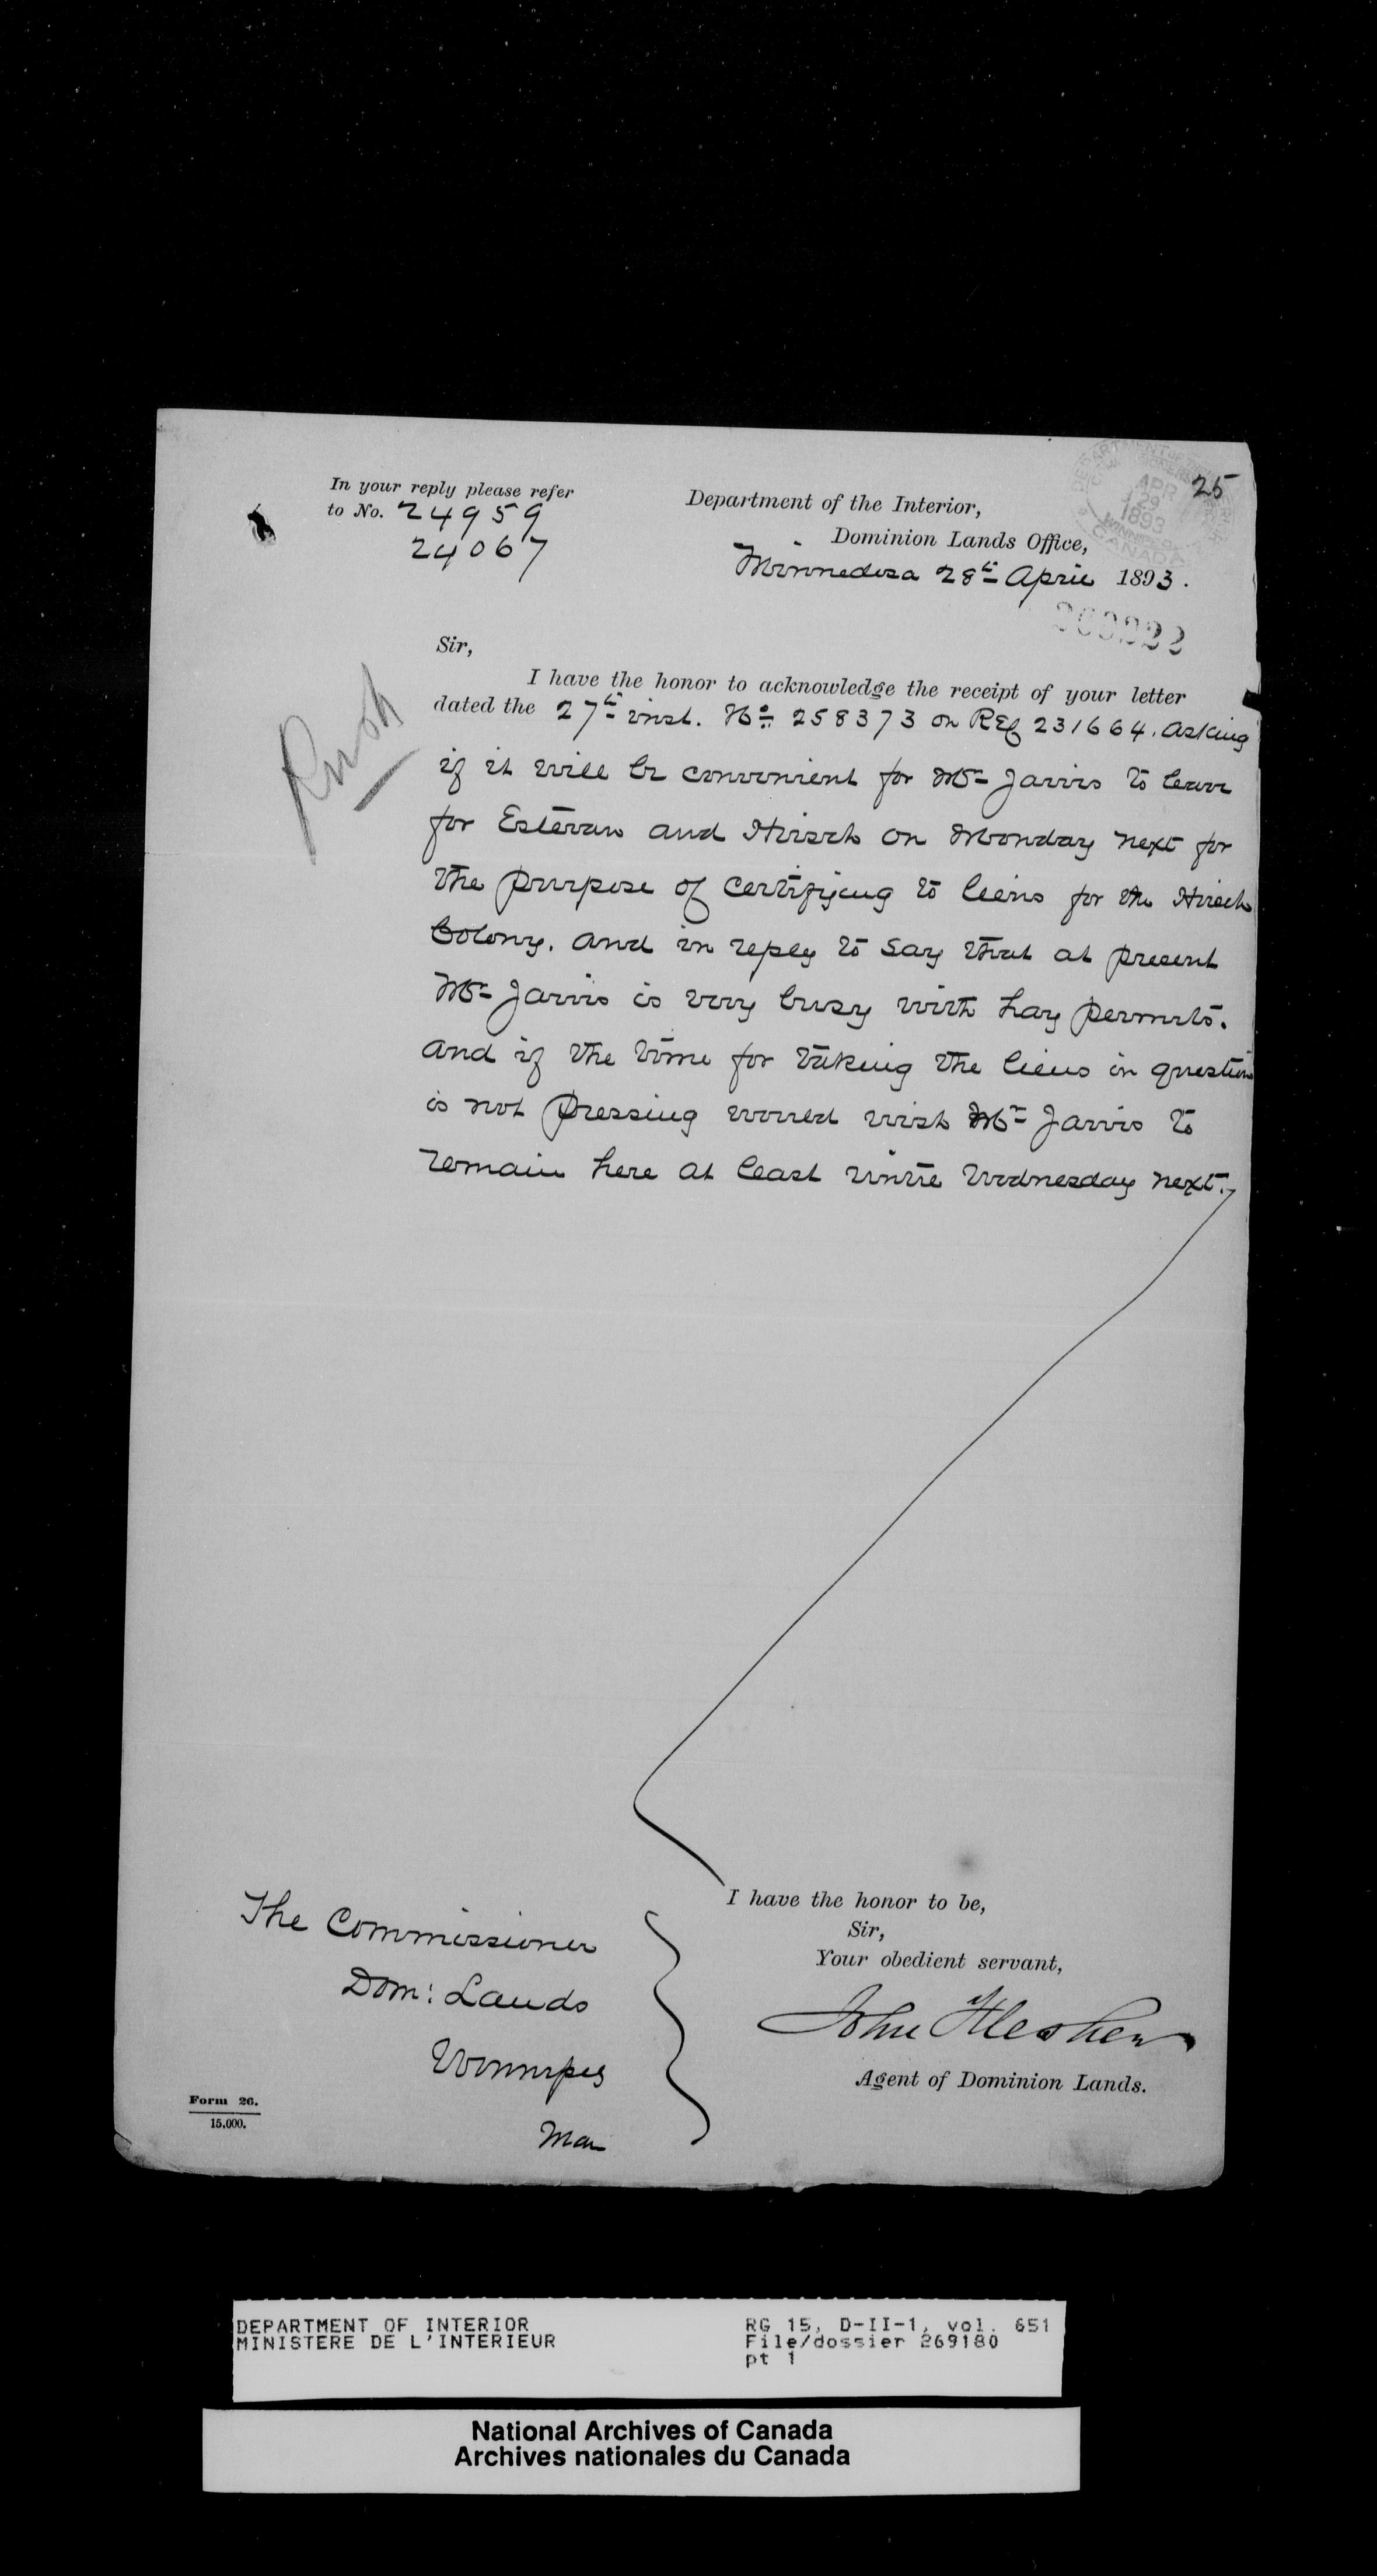 25
In your reply please refer
to No. 24959
24067
Department of the Interior,
Dominion Lands Office,
Minnedosa 28th April 1893.
APR
29
1893
WINNIPEG
CANADA
Sir,
Rush
I have the honor to acknowledge the receipt of your letter
dated the 27th inst. No 258373 on Ref 231664. asking
if it will be convenient for Mr Jarvis to leave
for Estevan and Hirsch on Monday next for
the purpose of certifying to liens for the Hirsch
Colony. and in reply to say that at present
Mr Jarvis is very busy with hay permits.
and if the time for taking the liens in question
is not pressing would wish Mr Jarvis to
remain here at least until Wednesday next.
I have the honor to be,
Sir,
Your obedient servant,
John Flesher
Agent of Dominion Lands.
The Commissioner
Dom: Lands
Winnipeg
Man
Form 26.
15,000.
DEPARTMENT OF INTERIOR
MINISTERE DE L'INTERIEUR
RG 15, D-II-1, vol. 651
File/dossier 269180
pt 1
National Archives of Canada
Archives nationales du Canada